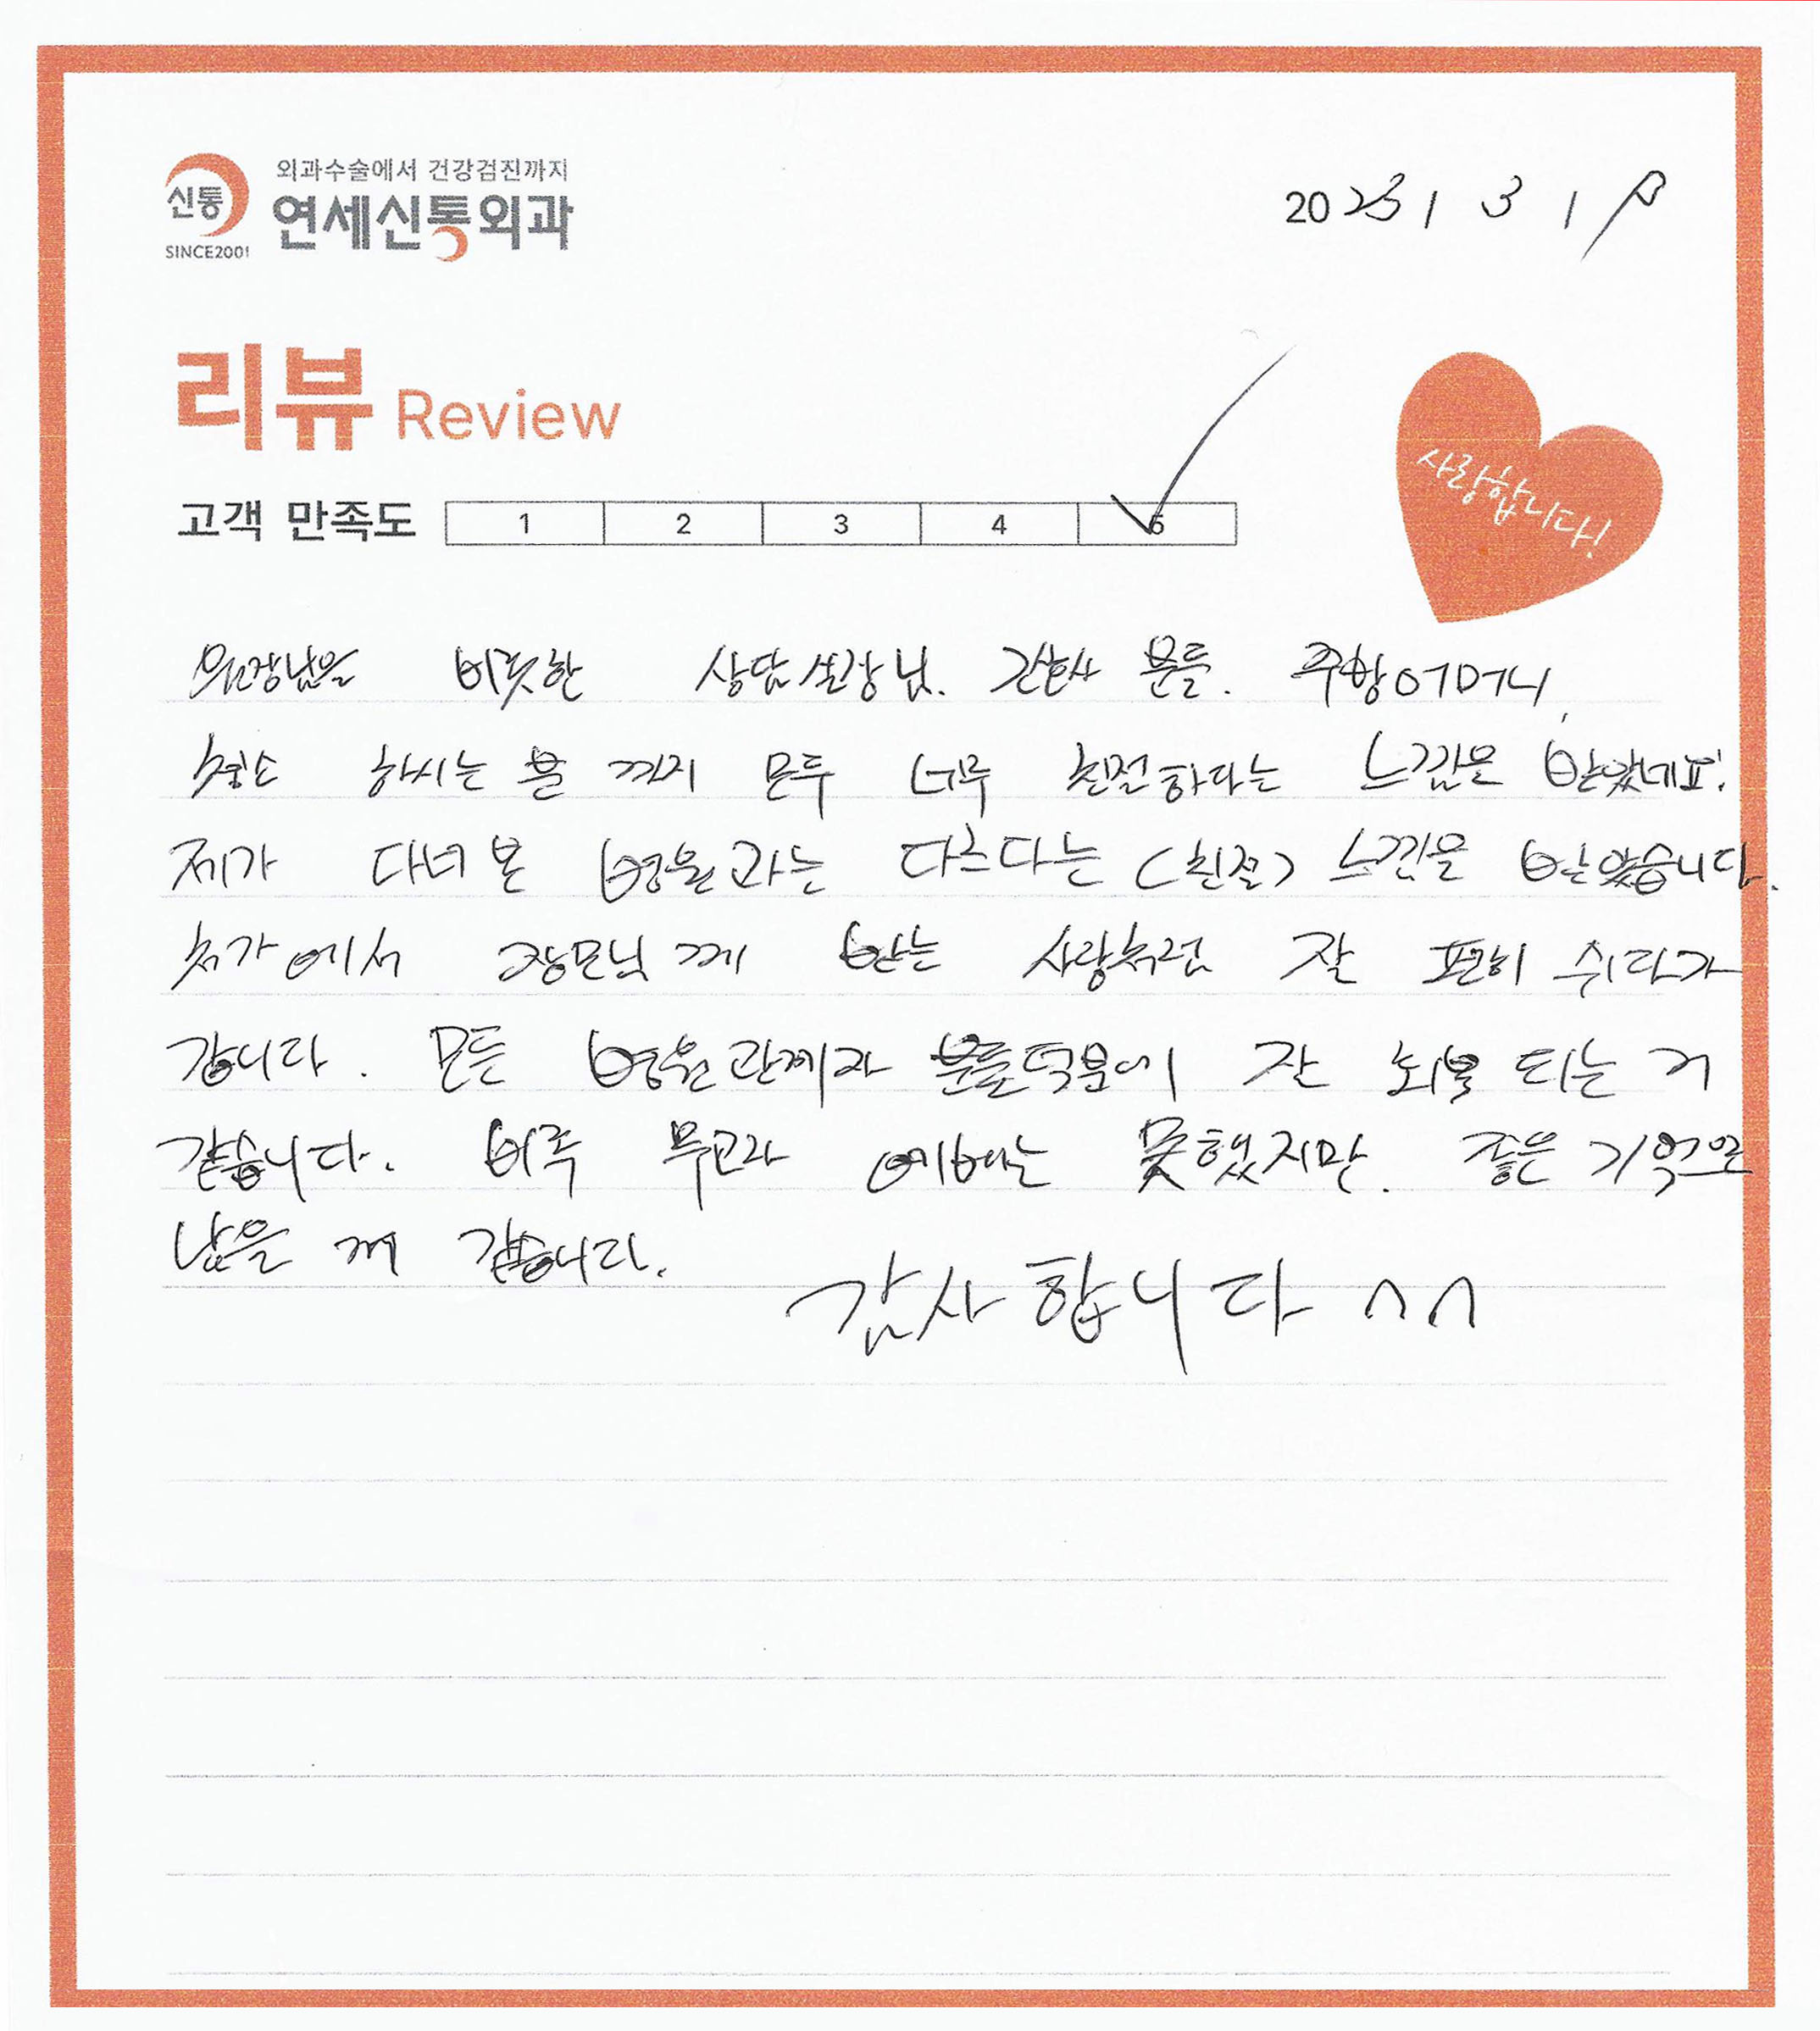 외과수술에서 건강검진까지
신통
연세신통외과
SINCE2001
2023 / 3 /
리뷰 Review
사랑합니다!
고객 만족도 1 2 3 4 5
원장님을 비롯한 상담실장님. 간호사 분들. 주방어머니,
청소 하시는 분 까지 모두 너무 친절하다는 느낌은 받았네요!
제가 다녀 본 병원과는 다르다는 (친절) 느낌을 받았습니다.
처가에서 장모님께 받는 사랑처럼 잘 편히 쉬다가
갑니다. 모든 병원관계자 분들덕분에 잘 회복 되는 거
같습니다. 비록 무교라 예배는 못했지만. 좋은 기억으로
남을 꺼 같습니다.
감사합니다 ^^